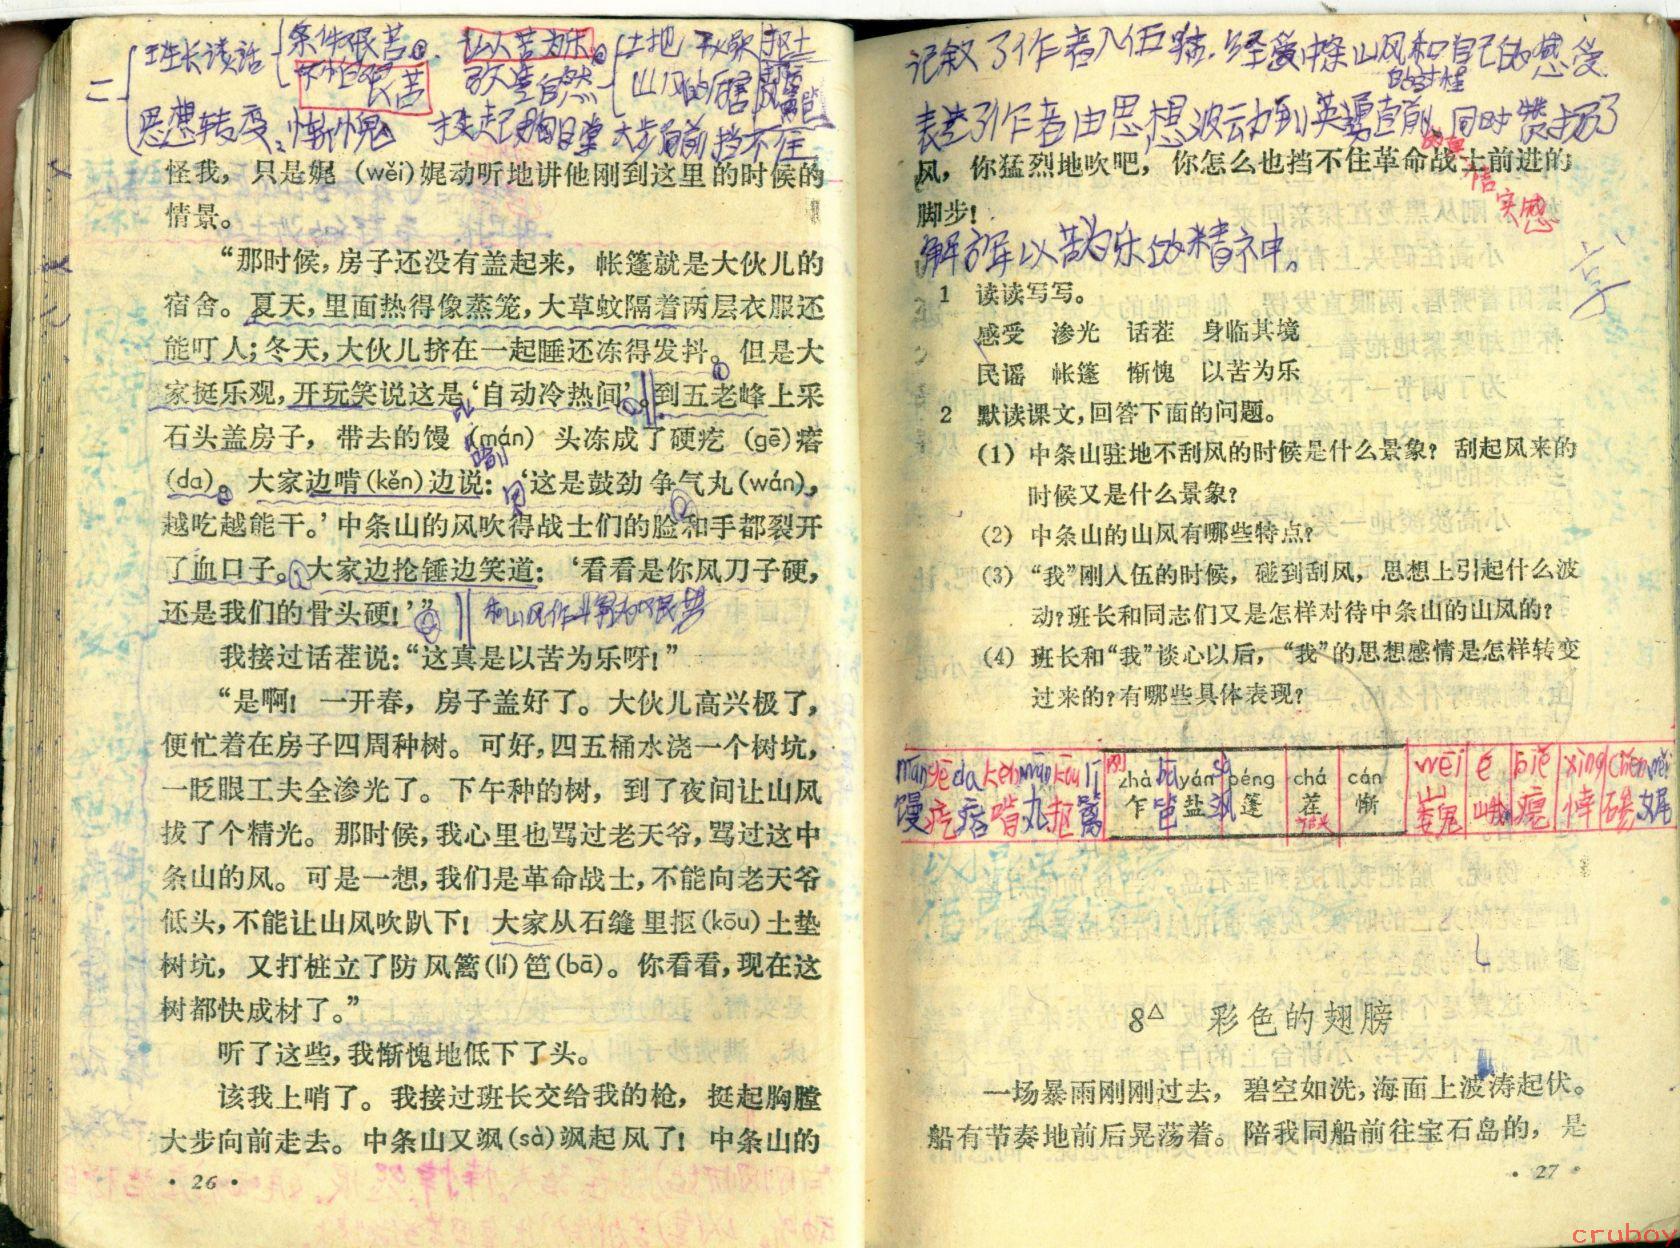 班长谈话 条件艰苦 以苦为乐 土地
不怕艰� 山风的厉害
思想转变：惭愧 挺起胸膛 大步向前 挡不住
怪我，只是娓 (wěi)娓动听地讲他刚到这里的时候的
情景。
“那时候，房子还没有盖起来，帐篷就是大伙儿的
宿舍。夏天，里面热得像蒸笼，大草蚊隔着两层衣服还
能叮人；冬天，大伙儿挤在一起睡还冻得发抖。但是大
家挺乐观，开玩笑说这是‘自动冷热间’。到五老峰上采
石头盖房子，带去的馒 (mán) 头冻成了硬疙 (gē)瘩
(da)。大家边啃(kěn)边说：‘这是鼓劲争气丸(wán)，
越吃越能干。’中条山的风吹得战士们的脸和手都裂开
了血口子。大家边抡锤边笑道：‘看看是你风刀子硬，
还是我们的骨头硬！’”
我接过话茬说：“这真是以苦为乐呀！”
“是啊！一开春，房子盖好了。大伙儿高兴极了，
便忙着在房子四周种树。可好，四五桶水浇一个树坑，
一眨眼工夫全渗光了。下午种的树，到了夜间让山风
拔了个精光。那时候，我心里也骂过老天爷，骂过这中
条山的风。可是一想，我们是革命战士，不能向老天爷
低头，不能让山风吹趴下！大家从石缝里抠(kōu)土垫
树坑，又打桩立了防风篱(lí)笆(bā)。你看看，现在这
树都快成材了。”
听了这些，我惭愧地低下了头。
该我上哨了。我接过班长交给我的枪，挺起胸膛
大步向前走去。中条山又飒(sà)飒起风了！中条山的
· 26 ·
记叙了作者入伍 经受中条山风和自己的感受
表达了作者由思想波动到英勇直前，同时赞扬了
风，你猛烈地吹吧，你怎么也挡不住革命战士前进的
脚步！
实感
解放军以苦为乐的精神。
1 读读写写。
感受 渗光 话茬 身临其境
民谣 帐篷 惭愧 以苦为乐
2 默读课文，回答下面的问题。
(1) 中条山驻地不刮风的时候是什么景象？刮起风来的
时候又是什么景象？
(2) 中条山的山风有哪些特点？
(3) “我”刚入伍的时候，碰到刮风，思想上引起什么波
动？班长和同志们又是怎样对待中条山的山风的？
(4) 班长和“我”谈心以后，“我”的思想感情是怎样转变
过来的？有哪些具体表现？
mán gē da kěn wán kōu lí zhà bā yán sà péng chá cán wēi é biě xìng chěn wěi
馒 疙 瘩 啃 丸 抠 篱 乍 笆 盐 飒 篷 茬 惭 巍 峨 瘪 悻 碜 娓
8△ 彩色的翅膀
一场暴雨刚刚过去，碧空如洗，海面上波涛起伏。
船有节奏地前后晃荡着。陪我同船前往宝石岛的，是
· 27 ·
cruboy